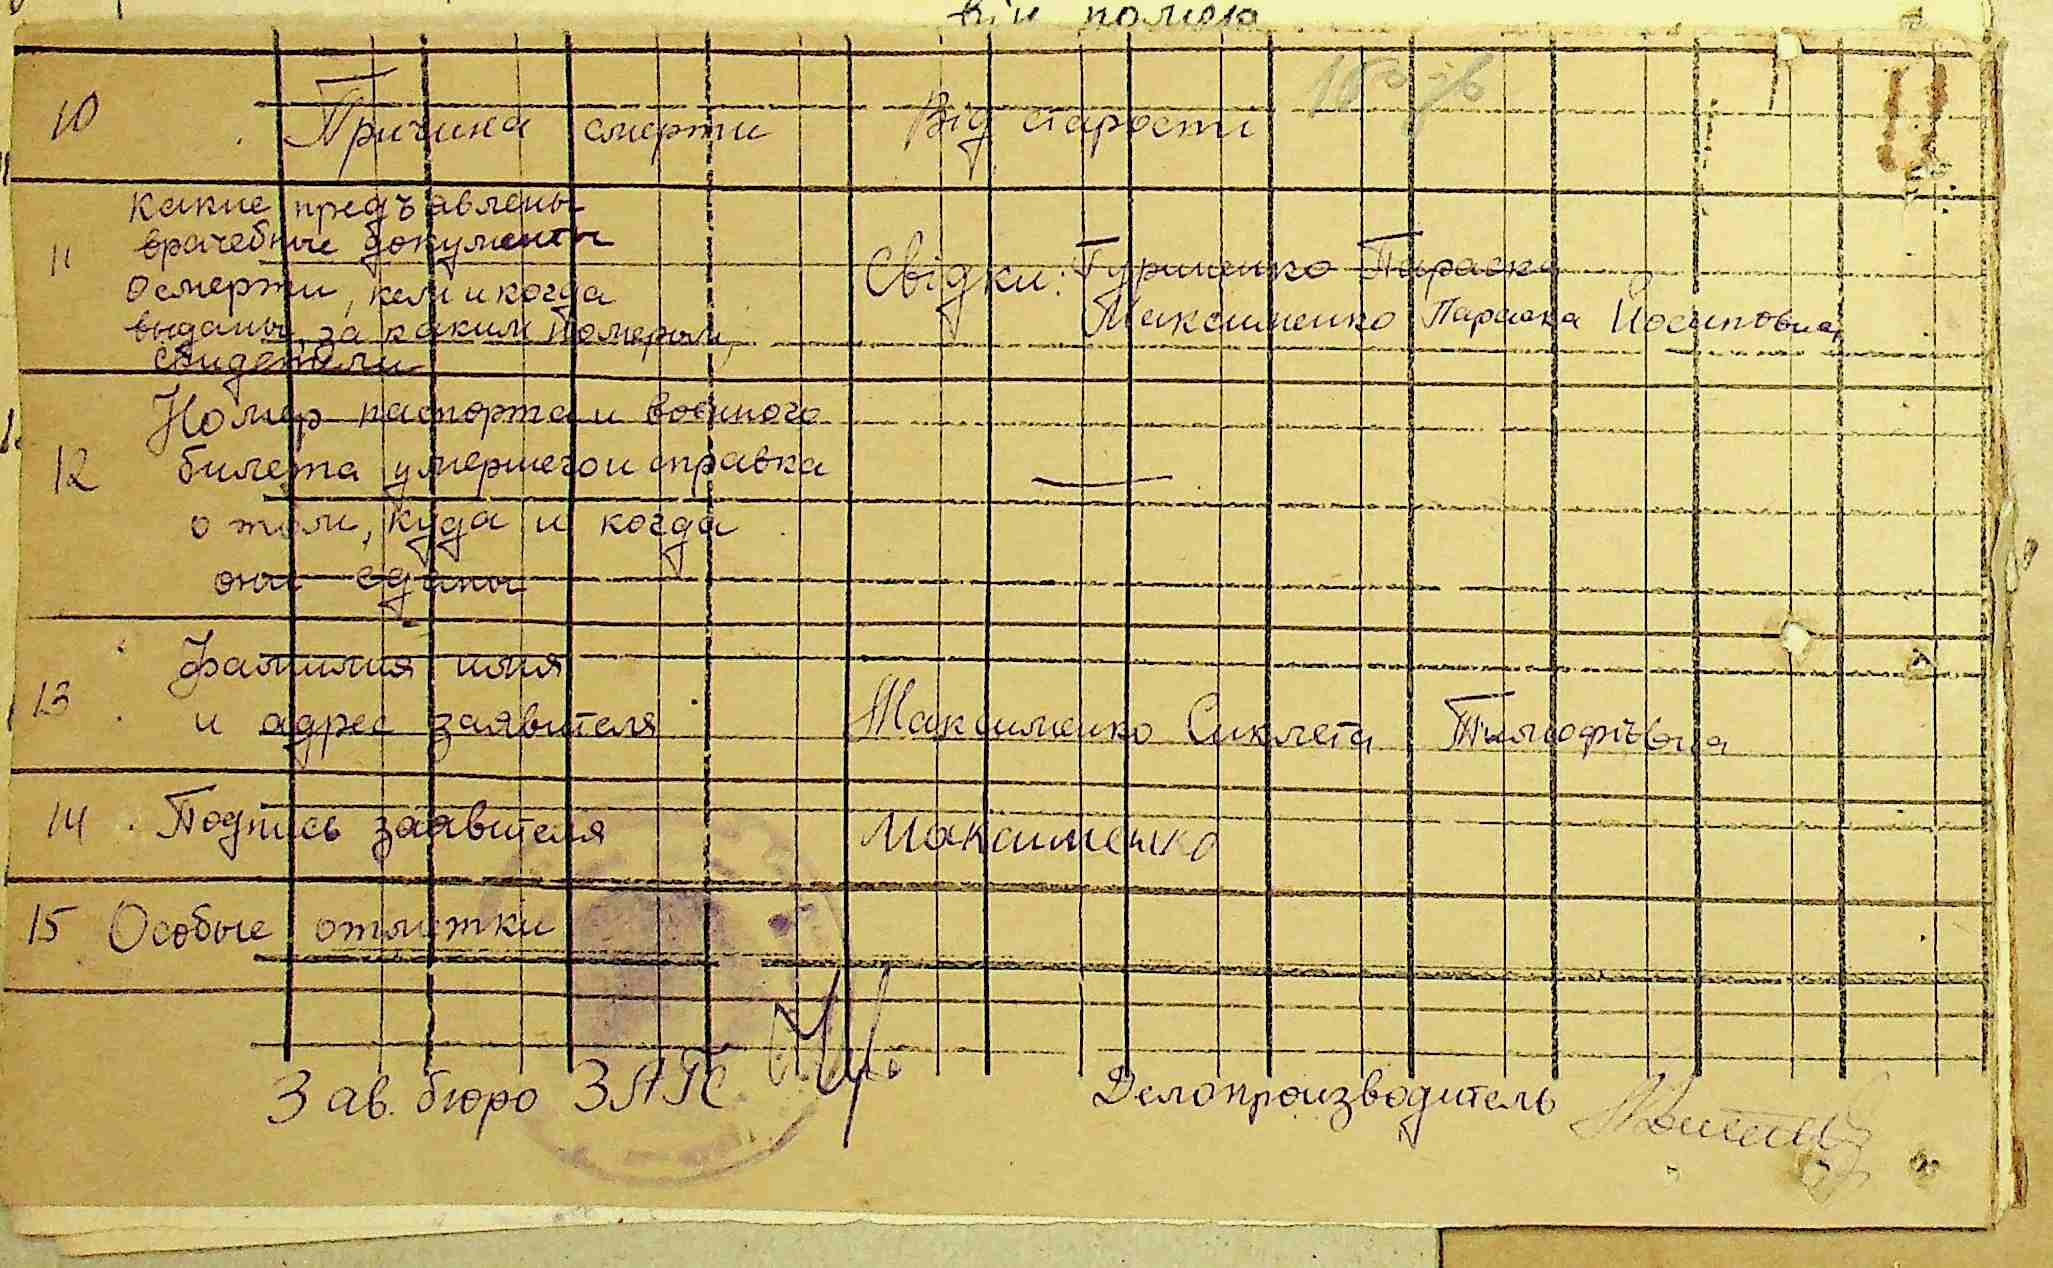 він помер
10 Причина смерти Від старости
какие предъявлены
врачебные документы
11 о смерти, кем и когда Свідки: Гуриненко Параска
выданы, за каким номером, Максименко Параска Иосиповна
свидетели
Номер паспорта и военного
12 билета умершего и справка —
о том, куда и когда
они сданы
Фамилия имя
13 и адрес заявителя Максименко Сиклета Тимофіъвна
14 Подпись заявителя Максименко
15 Особые отметки
Зав. бюро ЗАГС Делопроизводитель